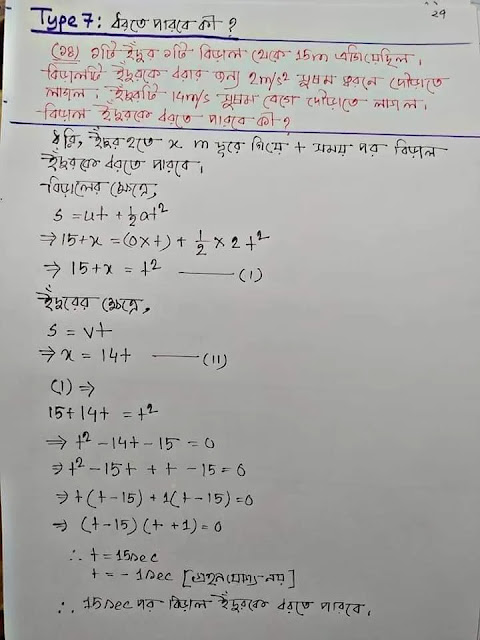 29
Type 7: ধরতে পারবে কী ?
(১৪) ১টি ইঁদুর ১টি বিড়াল থেকে 15m এগিয়েছিল।
বিড়ালটি ইঁদুরকে ধরার জন্য 2m/s2 সুষম ত্বরনে দৌড়াতে
লাগল। ইঁদুরটি 14m/s সুষম বেগে দৌড়াতে লাগল।
বিড়াল ইঁদুরকে ধরতে পারবে কী ?
ধরি, ইঁদুর হতে x m দূরে গিয়ে t সময় পর বিড়াল
ইঁদুরকে ধরতে পারবে।
বিড়ালের ক্ষেত্রে,
s = ut + ½at²
⇒ 15+x = (0×t) + ½ × 2 t²
⇒ 15+x = t² —— (I)
ইঁদুরের ক্ষেত্রে,
s = vt
⇒ x = 14t —— (II)
(I) ⇒
15+14t = t²
⇒ t² - 14t - 15 = 0
⇒ t² - 15t + t - 15 = 0
⇒ t(t-15) + 1(t-15) = 0
⇒ (t-15) (t+1) = 0
∴ t = 15sec
t = -1sec [গ্রহনযোগ্য নয়]
∴ 15sec পর বিড়াল ইঁদুরকে ধরতে পারবে।